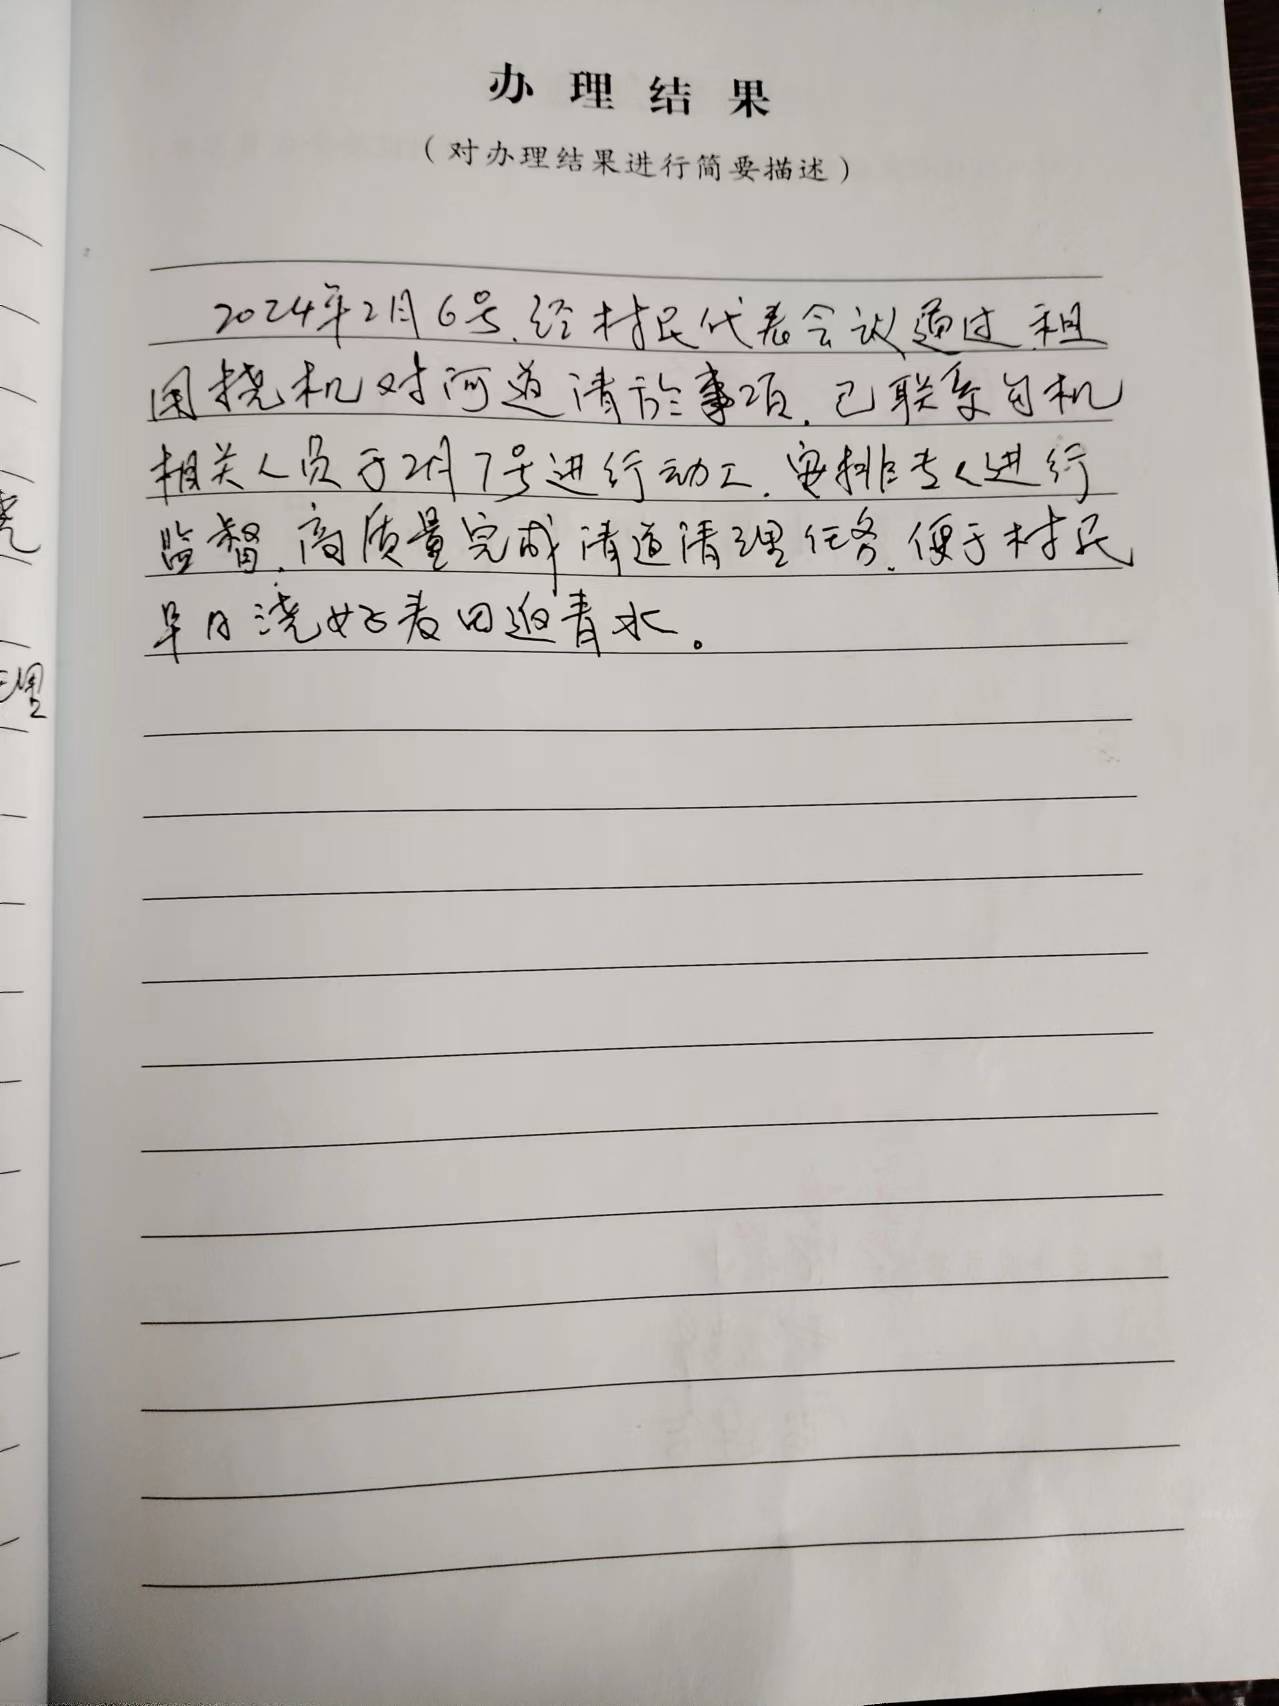 办理结果
（对办理结果进行简要描述）
2024年2月6号,经村民代表会议通过租
用挠机对河道清淤事项,已联系勾机
相关人员于2月7号进行动工,安排专人进行
监督,高质量完成清道清理任务,便于村民
早日浇好麦田返青水。
理